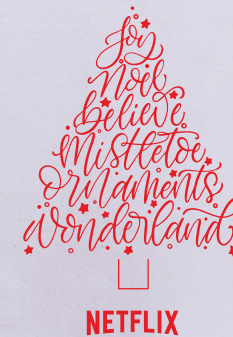 Joy
Noel
Believe
Mistletoe
Ornaments
Wonderland
NETFLIX